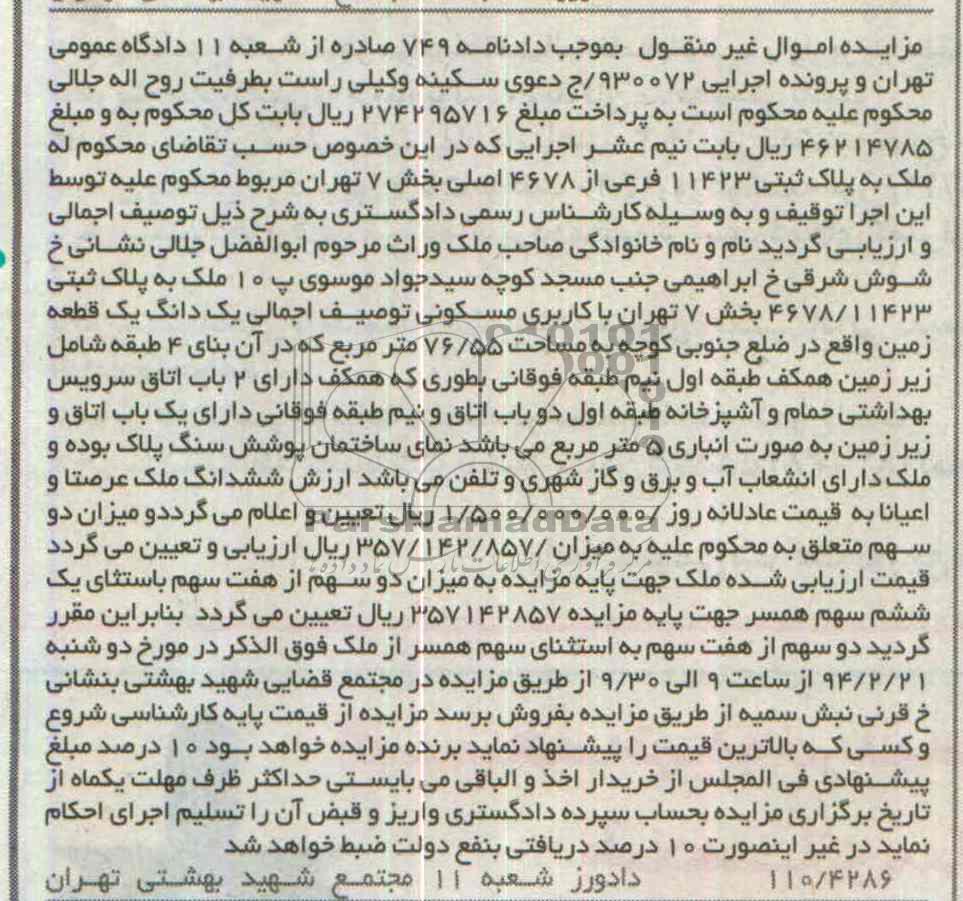 مزایـده امـوال غیر منقـول بموجب دادنامـه ۷۴۹ صادره از شـعبه ۱۱ دادگاه عمومی
تهران و پرونده اجرایی ۹۳۰۰۷۲/ج دعوی سـکینه وکیلی راست بطرفیت روح اله جلالی
محکوم علیه محکوم است به پرداخت مبلغ ۲۷۴۲۹۵۷۱۶ ریال بابت کل محکوم به و مبلغ
۴۶۲۱۴۷۸۵ ریال بابت نیم عشـر اجرایی که در این خصوص حسـب تقاضای محکوم له
ملک به پلاک ثبتی ۱۱۴۲۳ فرعی از ۴۶۷۸ اصلی بخش ۷ تهران مربوط محکوم علیه توسط
این اجرا توقیف و به وسـیله کارشـناس رسمی دادگسـتری به شرح ذیل توصیف اجمالی
و ارزیابـی گردید نام و نام خانوادگی صاحب ملک وراث مرحوم ابوالفضل جلالی نشـانی خ
شـوش شرقی خ ابراهیمی جنب مسجد کوچه سیدجواد موسوی پ ۱۰ ملک به پلاک ثبتی
۴۶۷۸/۱۱۴۲۳ بخش ۷ تهران با کاربری مسـکونی توصیـف اجمالی یک دانگ یک قطعه
زمین واقع در ضلع جنوبی کوچه به مساحت ۷۶/۵۵ متر مربع که در آن بنای ۴ طبقه شامل
زیر زمین همکف طبقه اول نیم طبقه فوقانی بطوری که همکف دارای ۲ باب اتاق سرویس
بهداشتی حمام و آشپزخانه طبقه اول دو باب اتاق و نیم طبقه فوقانی دارای یک باب اتاق و
زیر زمین به صورت انباری ۵ متر مربع می باشد نمای ساختمان پوشش سنگ پلاک بوده و
ملک دارای انشعاب آب و برق و گاز شهری و تلفن می باشد ارزش ششدانگ ملک عرصتا و
اعیانا به قیمت عادلانه روز /۱/۵۰۰/۰۰۰/۰۰۰ ریال تعیین و اعلام می گرددو میزان دو
سـهم متعلق به محکوم علیه به میزان /۳۵۷/۱۴۲/۸۵۷ ریال ارزیابی و تعیین می گردد
قیمت ارزیابی شـده ملک جهت پایه مزایده به میزان دو سـهم از هفت سهم باستثای یک
ششم سهم همسر جهت پایه مزایده ۳۵۷۱۴۲۸۵۷ ریال تعیین می گردد بنابراین مقرر
گردید دو سهم از هفت سهم به استثنای سهم همسر از ملک فوق الذکر در مورخ دو شنبه
۹۴/۲/۲۱ از ساعت ۹ الی ۹/۳۰ از طریق مزایده در مجتمع قضایی شهید بهشتی بنشانی
خ قرنی نبش سمیه از طریق مزایده بفروش برسد مزایده از قیمت پایه کارشناسی شروع
و کسـی کـه بالاترین قیمت را پیشـنهاد نماید برنده مزایده خواهد بـود ۱۰ درصد مبلغ
پیشـنهادی فی المجلس از خریدار اخذ و الباقی می بایسـتی حداکثر ظرف مهلت یکماه از
تاریخ برگزاری مزایده بحساب سپرده دادگستری واریز و قبض آن را تسلیم اجرای احکام
نماید در غیر اینصورت ۱۰ درصد دریافتی بنفع دولت ضبط خواهد شد
۱۱۰/۴۲۸۶ دادورز شـعبه ۱۱ مجتمـع شـهید بهشـتی تهـران
ParsNamadData